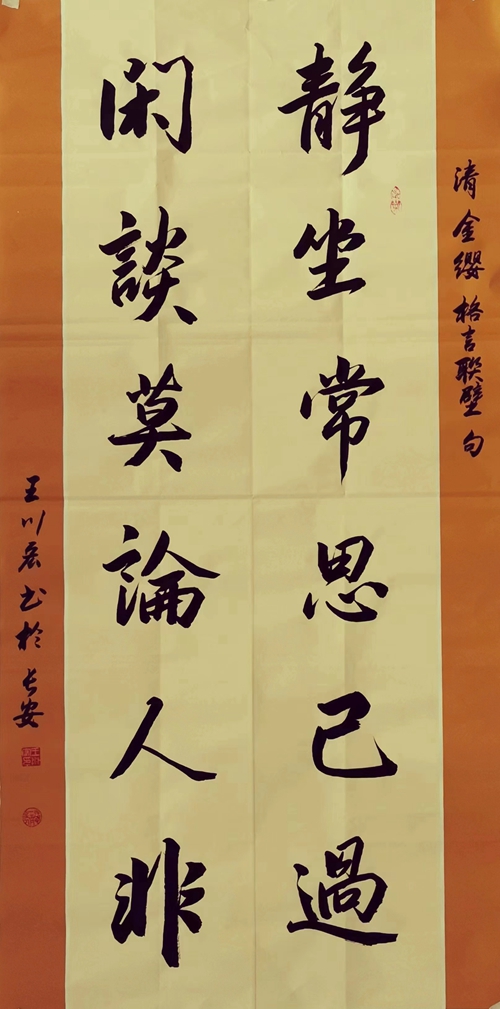 清金缨格言聯璧句
静坐常思己過
閑談莫論人非
王川宏书於长安